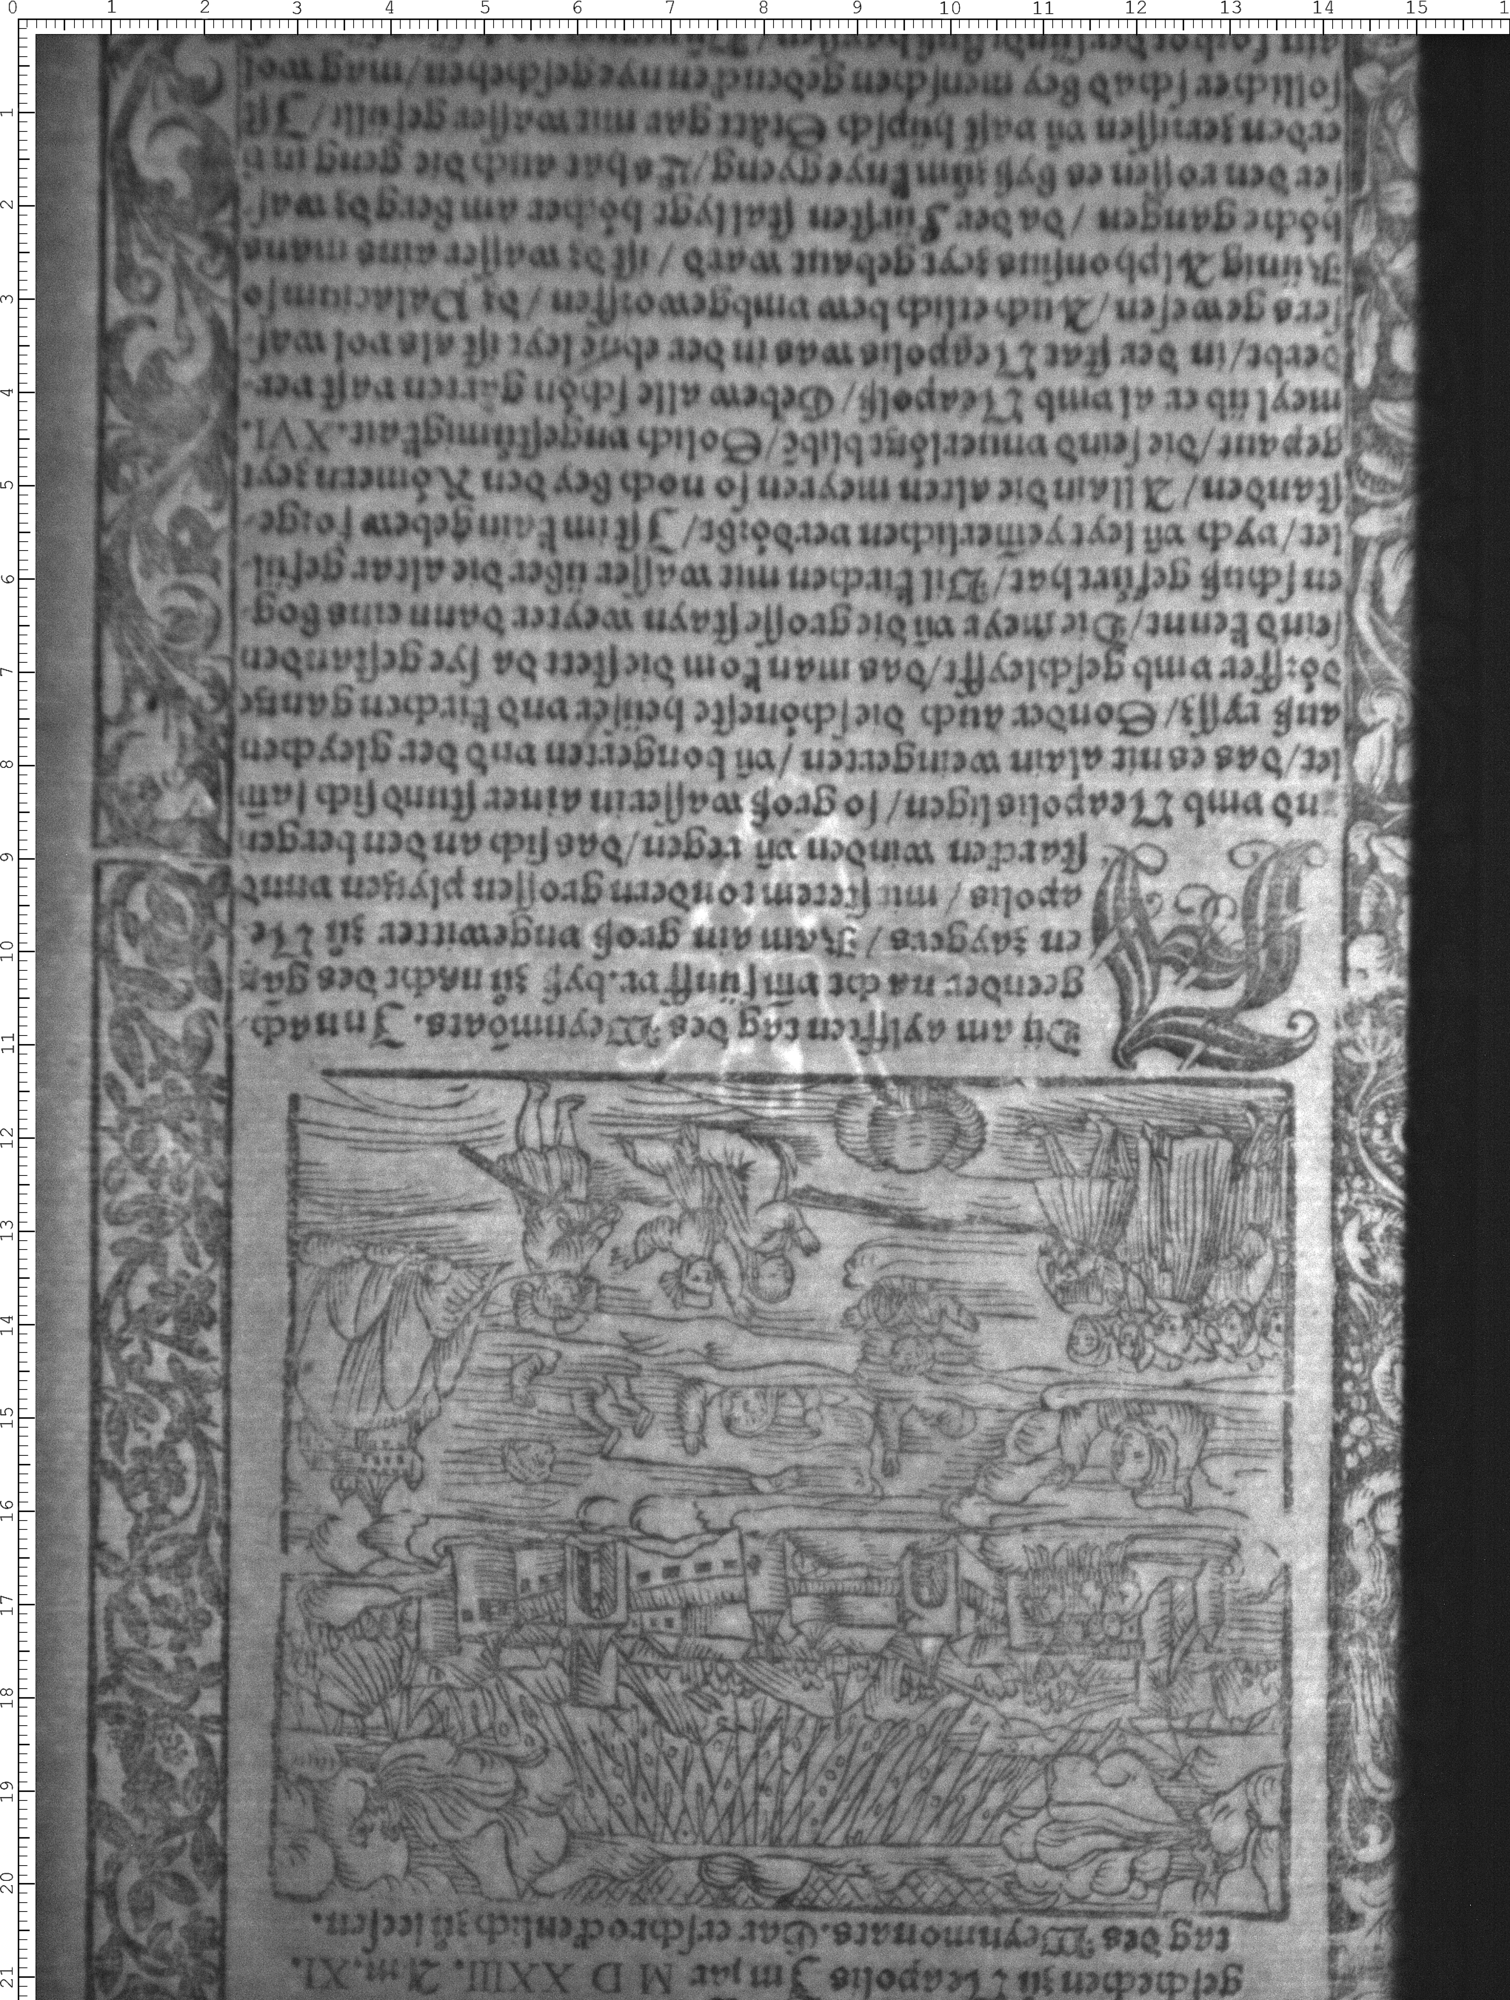 geschechen zů Neapolis Im jar M D XXIII. Am. XI.
tag des Weynmonats. Gar erschrockenlich zů leesen.
am aylfften tag des Weynmōats. Inn nach
geender nacht vm fünff vr. byß zů nacht des gātz
en zaygers / Kam ain groß vngewitter zů Ne
apolis / mit steetem tonndern grossen plytzen vnnd
starcken winden vn̄ regen / das sich an den bergen
vmb Neapolis ligen / so groß wasser in ainer stund sich sam
let / das es nit alain weingertten / vn̄ bongerten vnd der gleychen
auß rysß / Sonder auch die schönesten heuser vnd kirchen gantze
dörffer vmb geschleyfft / das man kom die stett da sye gestanden
seind kennt / Die meyr vn̄ die grosse stayn weyter dann eins bog
en schuß gefürt hat / Vil kirchen mit wasser über die altar gefül
let / dych vn̄ leyt yem̄erlichen verdörbt / Ist im kain gebew so ge
standen / Allain die alten meyren so noch bey den Römern zeyt
gepaut / die seind vnnerlögt blibē / Solich vngestümigkait. XVI.
meyl über al vmb Neapolß / Gebew alle schön gärten vast ver
derbt / in der statt Neapolis was in der ebne leyt ist als vol was
sers gewesen / Auch etlich bew vmbgeworffen / dz Palacium so
Künig Alphonsius zeyt gebaut ward / ist dz wasser ains mans
höche gangen / da der Fürsten stal lygt höcher am berg dz was
ser den rossen es byß zům knye gyeng / Es hat auch die geng in d
erden zerrissen vn̄ vast hüpsch Städt gar mit wasser gefült / Ist
sollicher schad bey menschen gedencken nye geschehen / mag wol